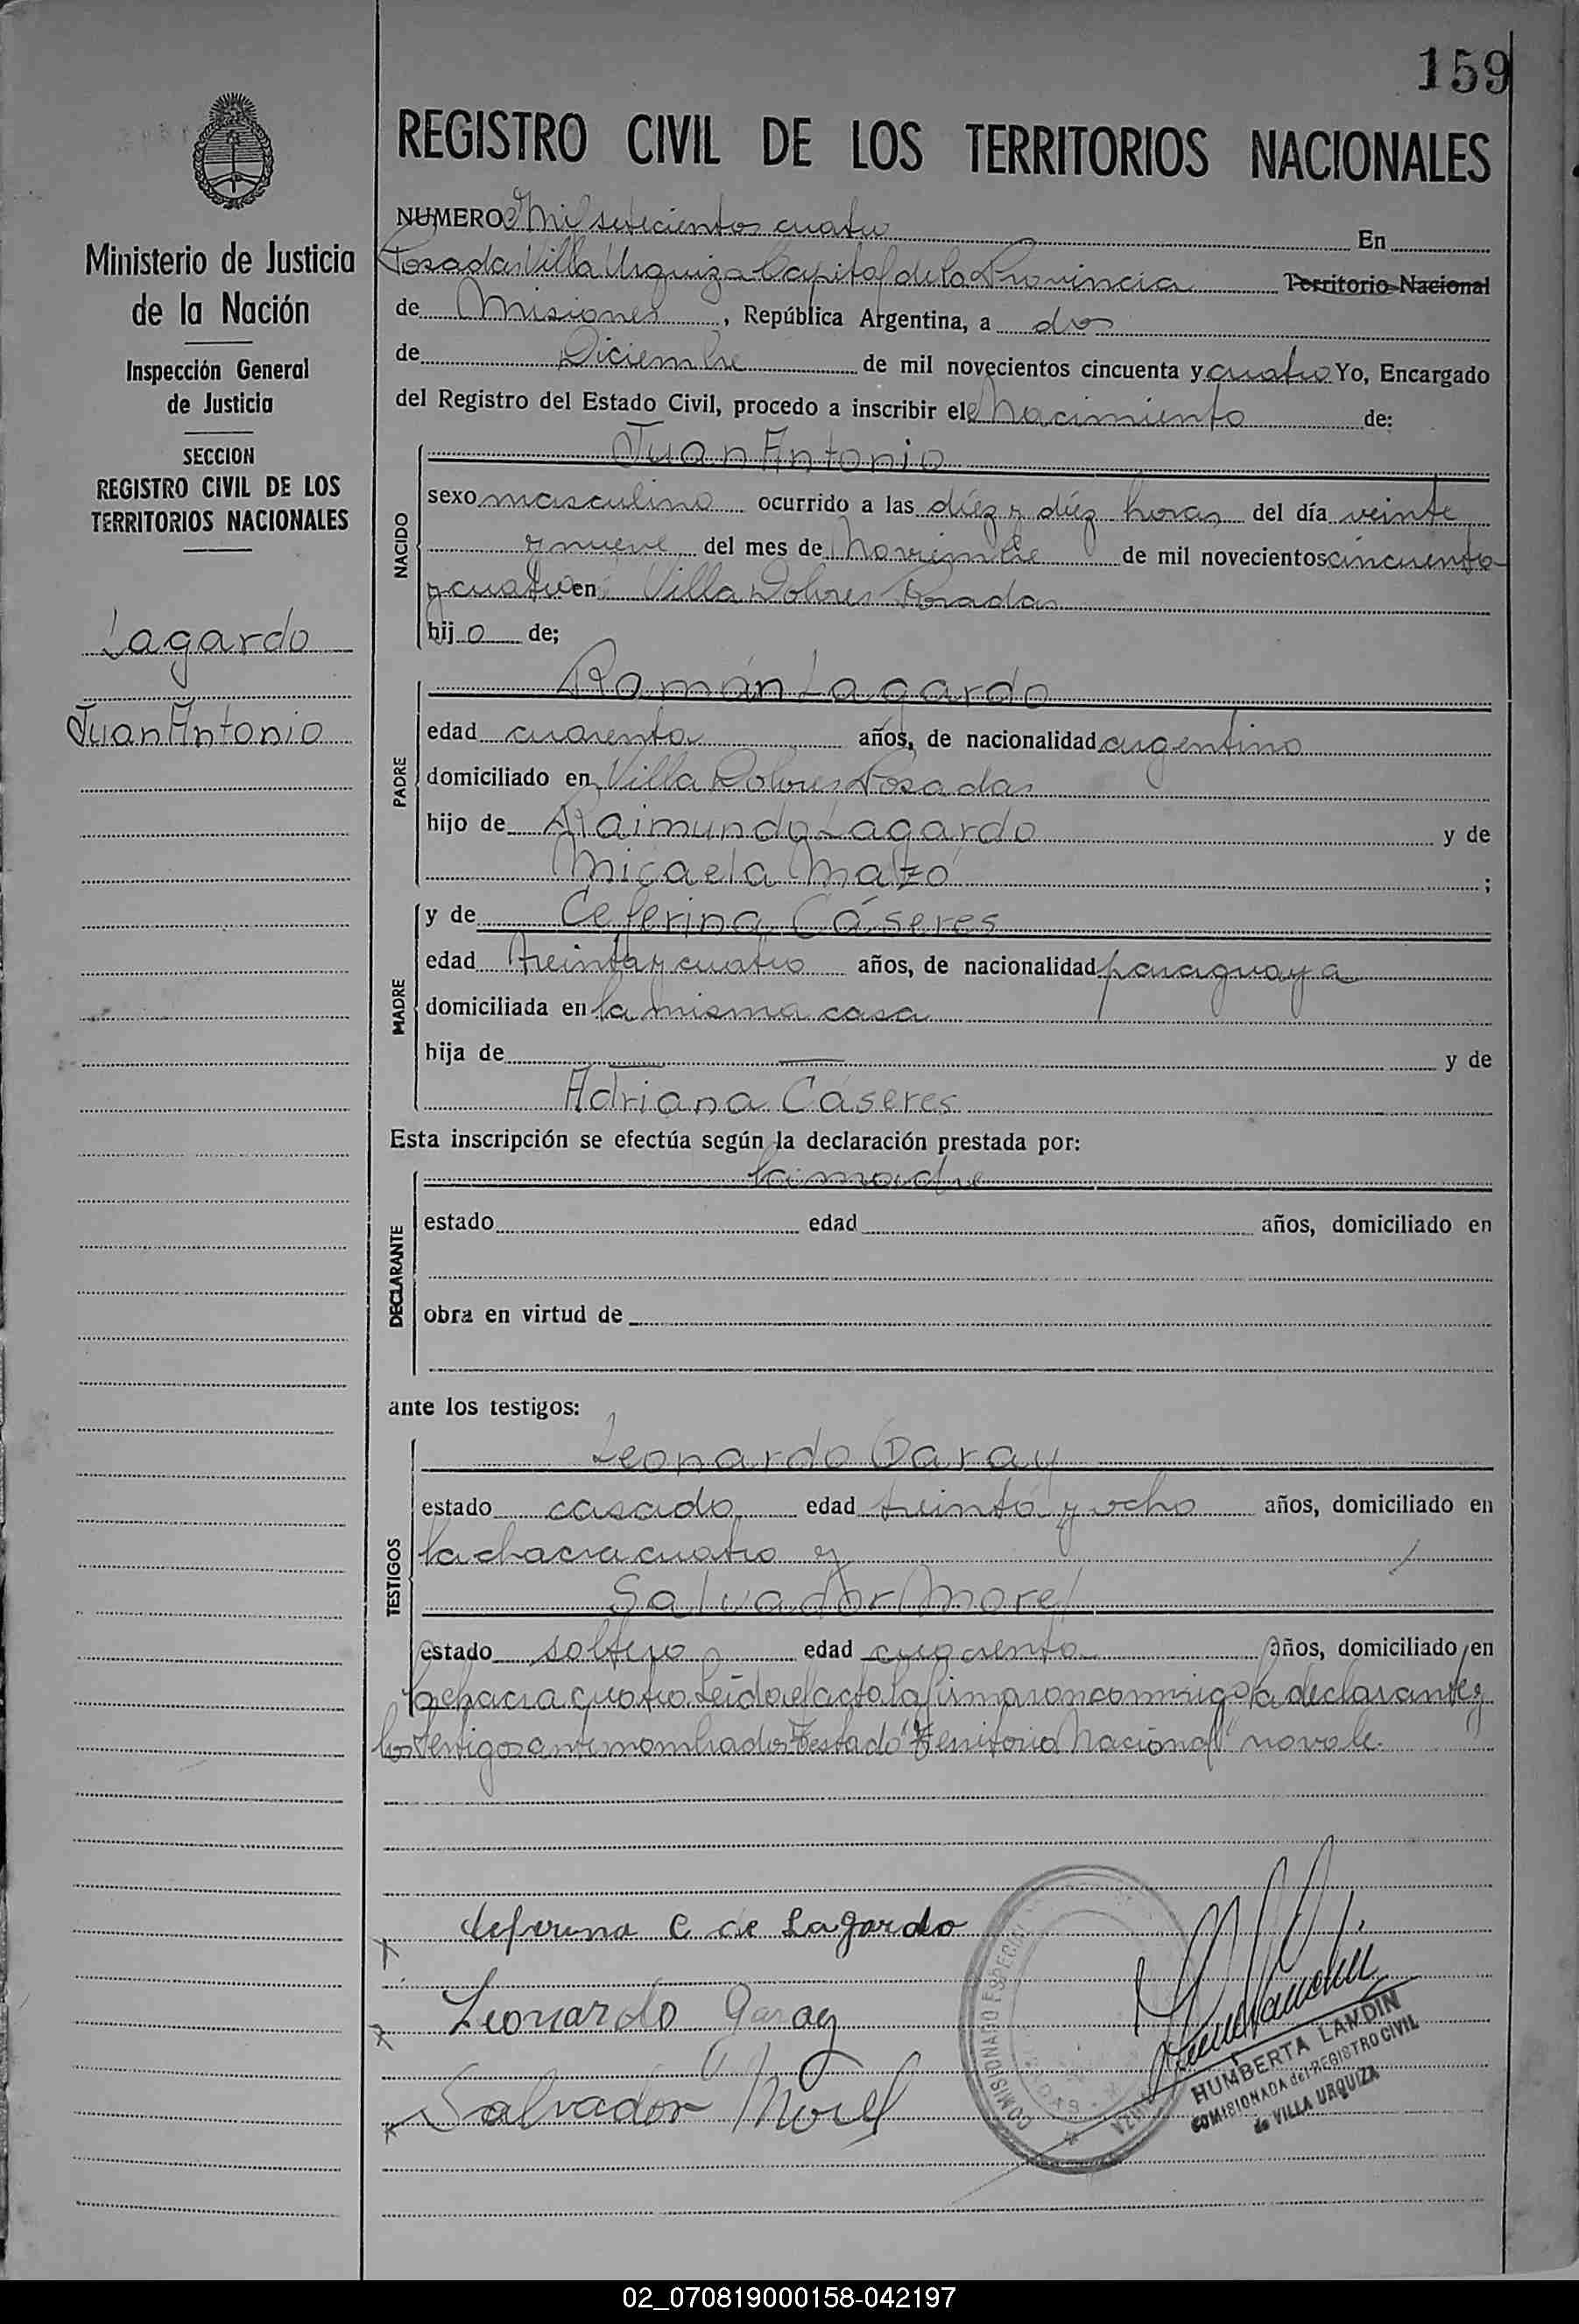 159
REGISTRO CIVIL DE LOS TERRITORIOS NACIONALES
Ministerio de Justicia
de la Nación
Inspección General
de Justicia
SECCION
REGISTRO CIVIL DE LOS
TERRITORIOS NACIONALES
Lagardo
Juan Antonio
NUMERO Mil setecientos cuatro En
Posadas Villa Urquiza Capital de la Provincia Territorio Nacional
de Misiones, República Argentina, a dos
de Diciembre de mil novecientos cincuenta y cuatro Yo, Encargado
del Registro del Estado Civil, procedo a inscribir el Nacimiento de:
NACIDO
Juan Antonio
sexo masculino ocurrido a las diéz y diéz horas del día veinte
y nueve del mes de Noviembre de mil novecientos cincuenta
y cuatro en Villa Dolores Posadas
hijo de;
PADRE
Román Lagardo
edad cuarenta años, de nacionalidad argentino
domiciliado en Villa Dolores Posadas
hijo de Raimundo Lagardo y de
Micaela Matzó ;
MADRE
y de Ceferina Cáseres
edad treinta y cuatro años, de nacionalidad paraguaya
domiciliada en la misma casa
hija de — y de
Adriana Cáseres
Esta inscripción se efectúa según la declaración prestada por:
DECLARANTE
la madre
estado edad años, domiciliado en
obra en virtud de
ante los testigos:
TESTIGOS
Leonardo Garay
estado casado edad treinta y ocho años, domiciliado en
la chacra cuatro y
Salvador Morel
estado soltero edad cuarenta años, domiciliado en
la chacra cuatro. Leída el acta la firmaron conmigo la declarante y
los testigos antenombrados Testado "Territorio Nacional" no vale.
Ceferina C de Lagardo
Leonardo Garay
Salvador Morel
COMISIONADO ESPECIAL
HUMBERTA LANDIN
COMISIONADA del REGISTRO CIVIL
de VILLA URQUIZA
02_070819000158-042197